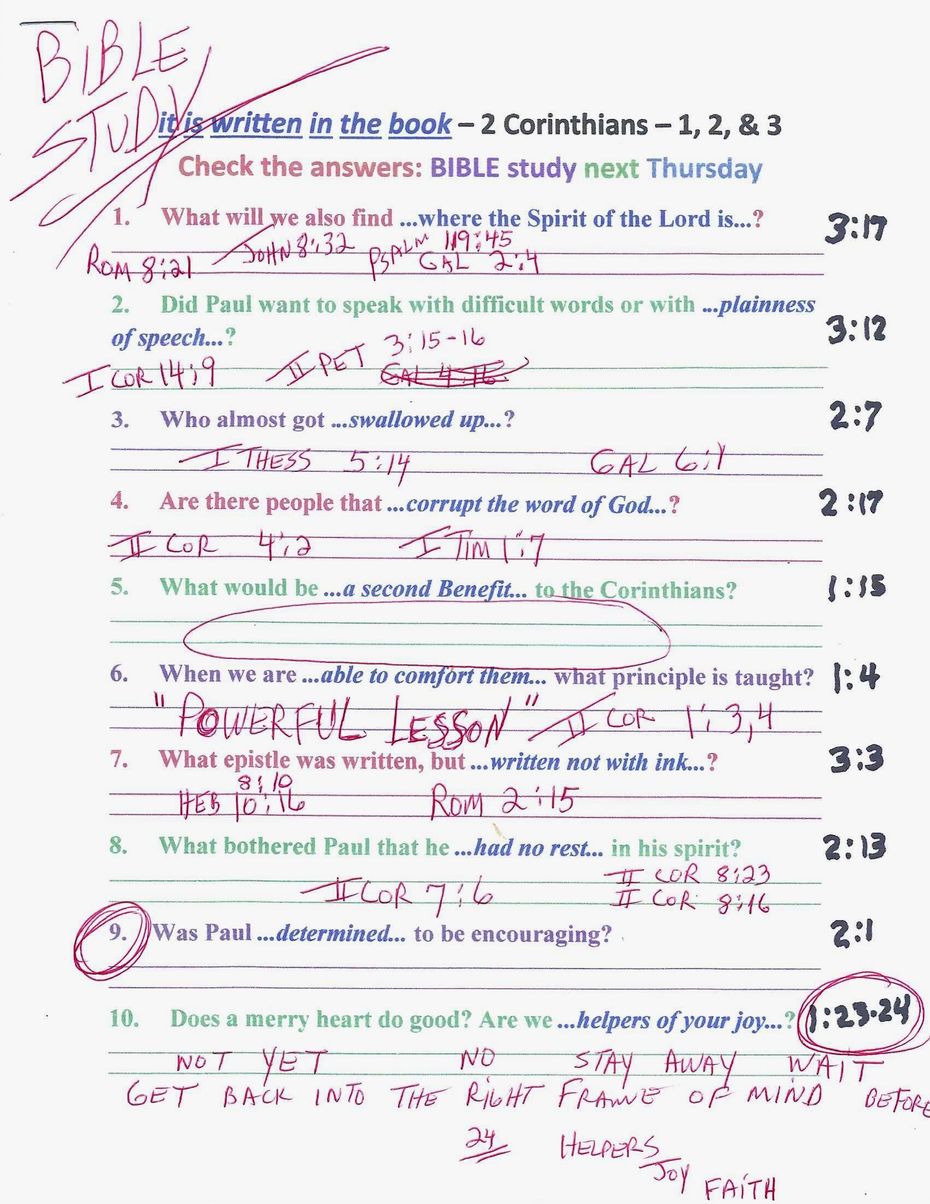 BIBLE
STUDY
it is written in the book – 2 Corinthians – 1, 2, & 3
Check the answers: BIBLE study next Thursday
1. What will we also find ...where the Spirit of the Lord is...? 3:17
ROM 8:21 JOHN 8:32 PSALM 119:45
GAL 2:4
2. Did Paul want to speak with difficult words or with ...plainness
of speech...? 3:12
I COR 14:9 II PET 3:15-16
3. Who almost got ...swallowed up...? 2:7
I THESS 5:14 GAL 6:1
4. Are there people that ...corrupt the word of God...? 2:17
II COR 4:2 I TIM 1:7
5. What would be ...a second Benefit... to the Corinthians? 1:15
6. When we are ...able to comfort them... what principle is taught? 1:4
"POWERFUL LESSON" II COR 1:3,4
7. What epistle was written, but ...written not with ink...? 3:3
8:10
HEB 10:16 ROM 2:15
8. What bothered Paul that he ...had no rest... in his spirit? 2:13
II COR 8:23
II COR 7:6 II COR 8:16
9. Was Paul ...determined... to be encouraging? 2:1
10. Does a merry heart do good? Are we ...helpers of your joy...? 1:23-24
NOT YET NO STAY AWAY WAIT
GET BACK INTO THE RIGHT FRAME OF MIND BEFORE
24 HELPERS
JOY
FAITH